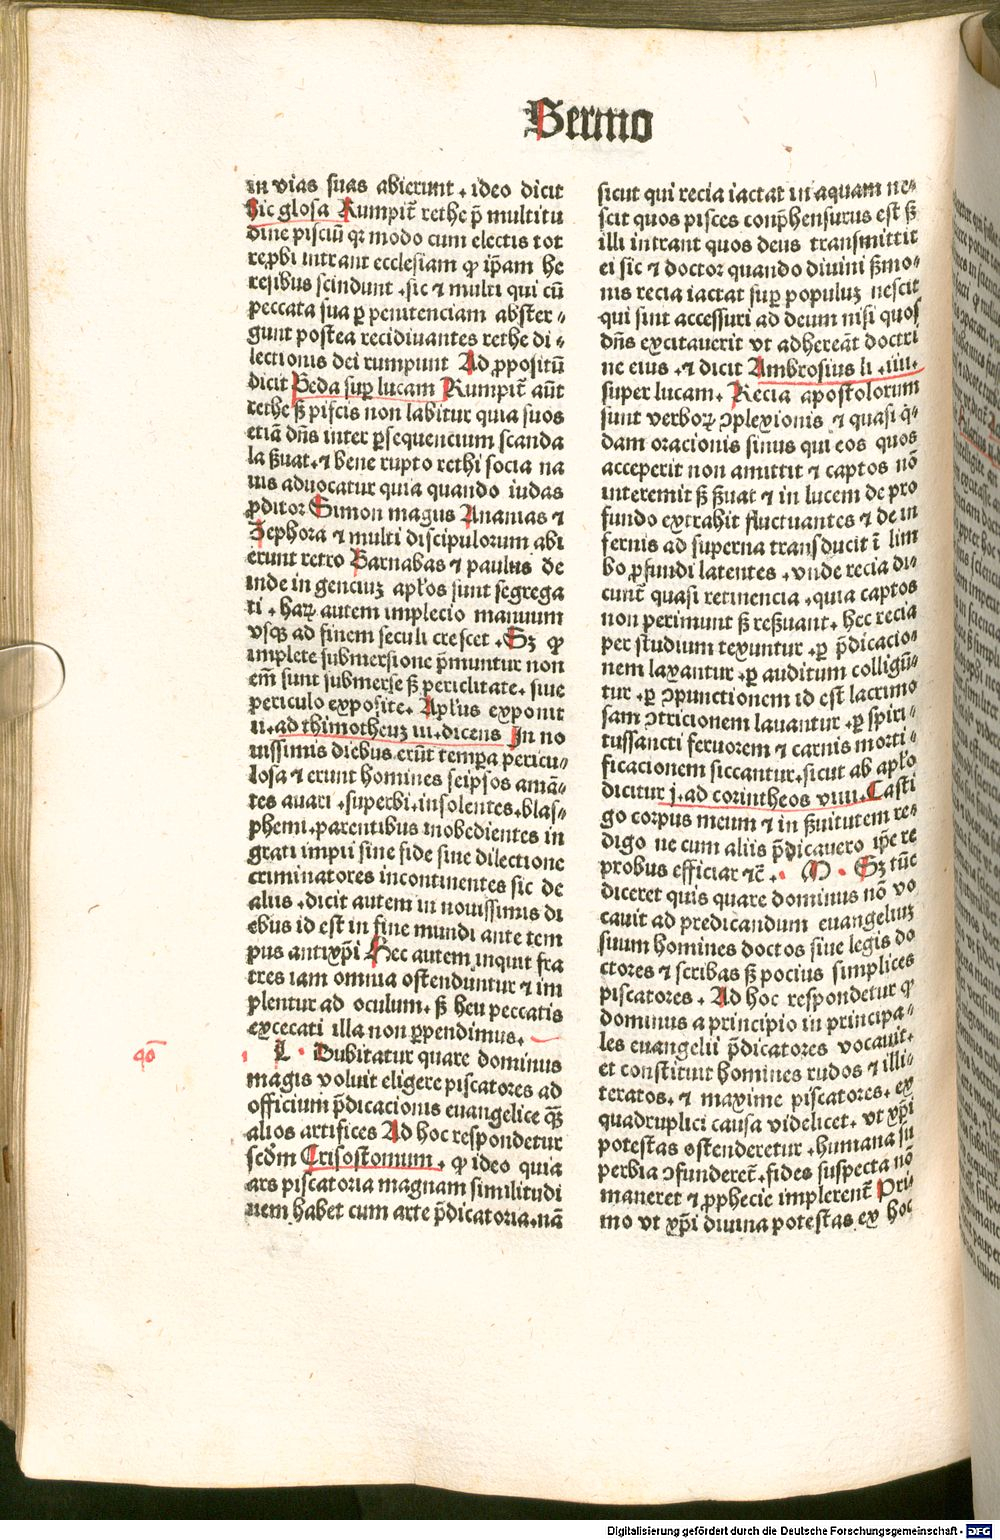 Sermo
in vias suas abierunt . ideo dicit
hic glosa Rumpit̄ rethe p̄ multitu
dine pisciū qꝛ modo cum electis tot
reꝓbi intrant ecclesiam ꝙ ip̄am he
resibus scindunt .sic ⁊ multi qui cū
peccata sua ꝑ penitenciam abster⸗
gunt postea recidiuantes rethe di⸗
lectionis dei rumpunt Ad ꝓpositū
dicit Beda suꝑ lucam Rumpit̄ aūt
rethe sꝫ piscis non labitur quia suos
etiā dn̄s inter ꝑsequencium scanda
la ẜuat.⁊ bene rupto rethi socia na
uis aduocatur quia quando iudas
ꝓditor Simon magus Ananias ⁊
Zephora ⁊ multi discipulorum abi
erunt retro Barnabas ⁊ paulus de
inde in genciuꝫ apl̓os sunt segrega
ti . haꝝ autem implecio manuum
vsqꝫ ad finem seculi crescet .Sꝫ ꝙ
implete submersione p̄muntur non
em̄ sunt submerse sꝫ periclitate. siue
periculo exposite. Apl̓us exponit
ii.ad thimotheuꝫ iii.dicens In no
uissimis diebus erūt temꝑa pericu⸗
losa ⁊ erunt homines seipsos amā⸗
tes auari .superbi.insolentes.blas⸗
phemi.parentibus inobedientes in
grati impii sine fide sine dilectione
criminatores incontinentes sic de
aliis .dicit autem in nouissimis di
ebus id est in fine mundi ante tem
pus antixp̄i Hec autem inquit fra
tres iam omnia ostenduntur ⁊ im
plentur ad oculum. sꝫ heu peccatis
excecati illa non ꝑpendimus.
qō
L . Dubitatur quare dominus
magis voluit eligere piscatores ad
officium p̄dicacionis euangelice qꝫ̄
alios artifices Ad hoc respondetur
scd̓m Crisostomum . ꝙ ideo quia
ars piscatoria magnam similitudi
nem habet cum arte p̄dicatoria.nā
sicut qui recia iactat in aquam ne⸗
scit quos pisces conp̄hensurus est sꝫ
illi intrant quos deus transmittit
ei sic ⁊ doctor quando diuini ẜmo⸗
nis recia iactat suꝑ populuꝫ nescit
qui sint accessuri ad deum nisi quos
dn̄s excitauerit vt adhereāt doctri
ne eius .⁊ dicit Ambrosius li .iiii.
super lucam. Recia apostolorum
sunt verboꝝ ꝯplexionis ⁊ quasi q̄⸗
dam oracionis sinus qui eos quos
acceperit non amittit ⁊ captos nō
interemit sꝫ ẜuat ⁊ in lucem de pro
fundo extrahit fluctuantes ⁊ de in
fernis ad superna transducit ī lim
bo ꝓfundi latentes . vnde recia di⸗
cunt̄ quasi retinencia .quia captos
non perimunt sꝫ reẜuant. hec recia
per studium texuntur .ꝑ p̄dicacio⸗
nem laxantur .ꝑ auditum colligū⸗
tur .ꝑ ꝯpunctionem id est lacrimo
sam ꝯtricionem lauantur .ꝑ spiri⸗
tussancti feruorem ⁊ carnis morti⸗
ficacionem siccantur.sicut ab apl̓o
dicitur j.ad corintheos viiii.Casti
go corpus meum ⁊ in ẜuitutem re⸗
digo ne cum aliis p̄dicauero ip̄e re
probus efficiar ⁊c̄ . M . Sꝫ tūc
diceret quis quare dominus nō vo
cauit ad predicandum euangeliuꝫ
suum homines doctos siue legis do
ctores ⁊ scribas sꝫ pocius simplices
piscatores . Ad hoc respondetur ꝙ
dominus a principio in principa⸗
les euangelii p̄dicatores vocauit.
et constituit homines rudos ⁊ illi⸗
teratos. ⁊ maxime piscatores. ex
quadruplici causa videlicet. vt xp̄i
potestas ostenderetur .humana su
perbia ꝯfunderet̄. fides suspecta nō
maneret ⁊ ꝓphecie implerent̄ Pri⸗
mo vt xp̄i diuina potestas ex hoc
Digitalisierung gefördert durch die Deutsche Forschungsgemeinschaft - DFG